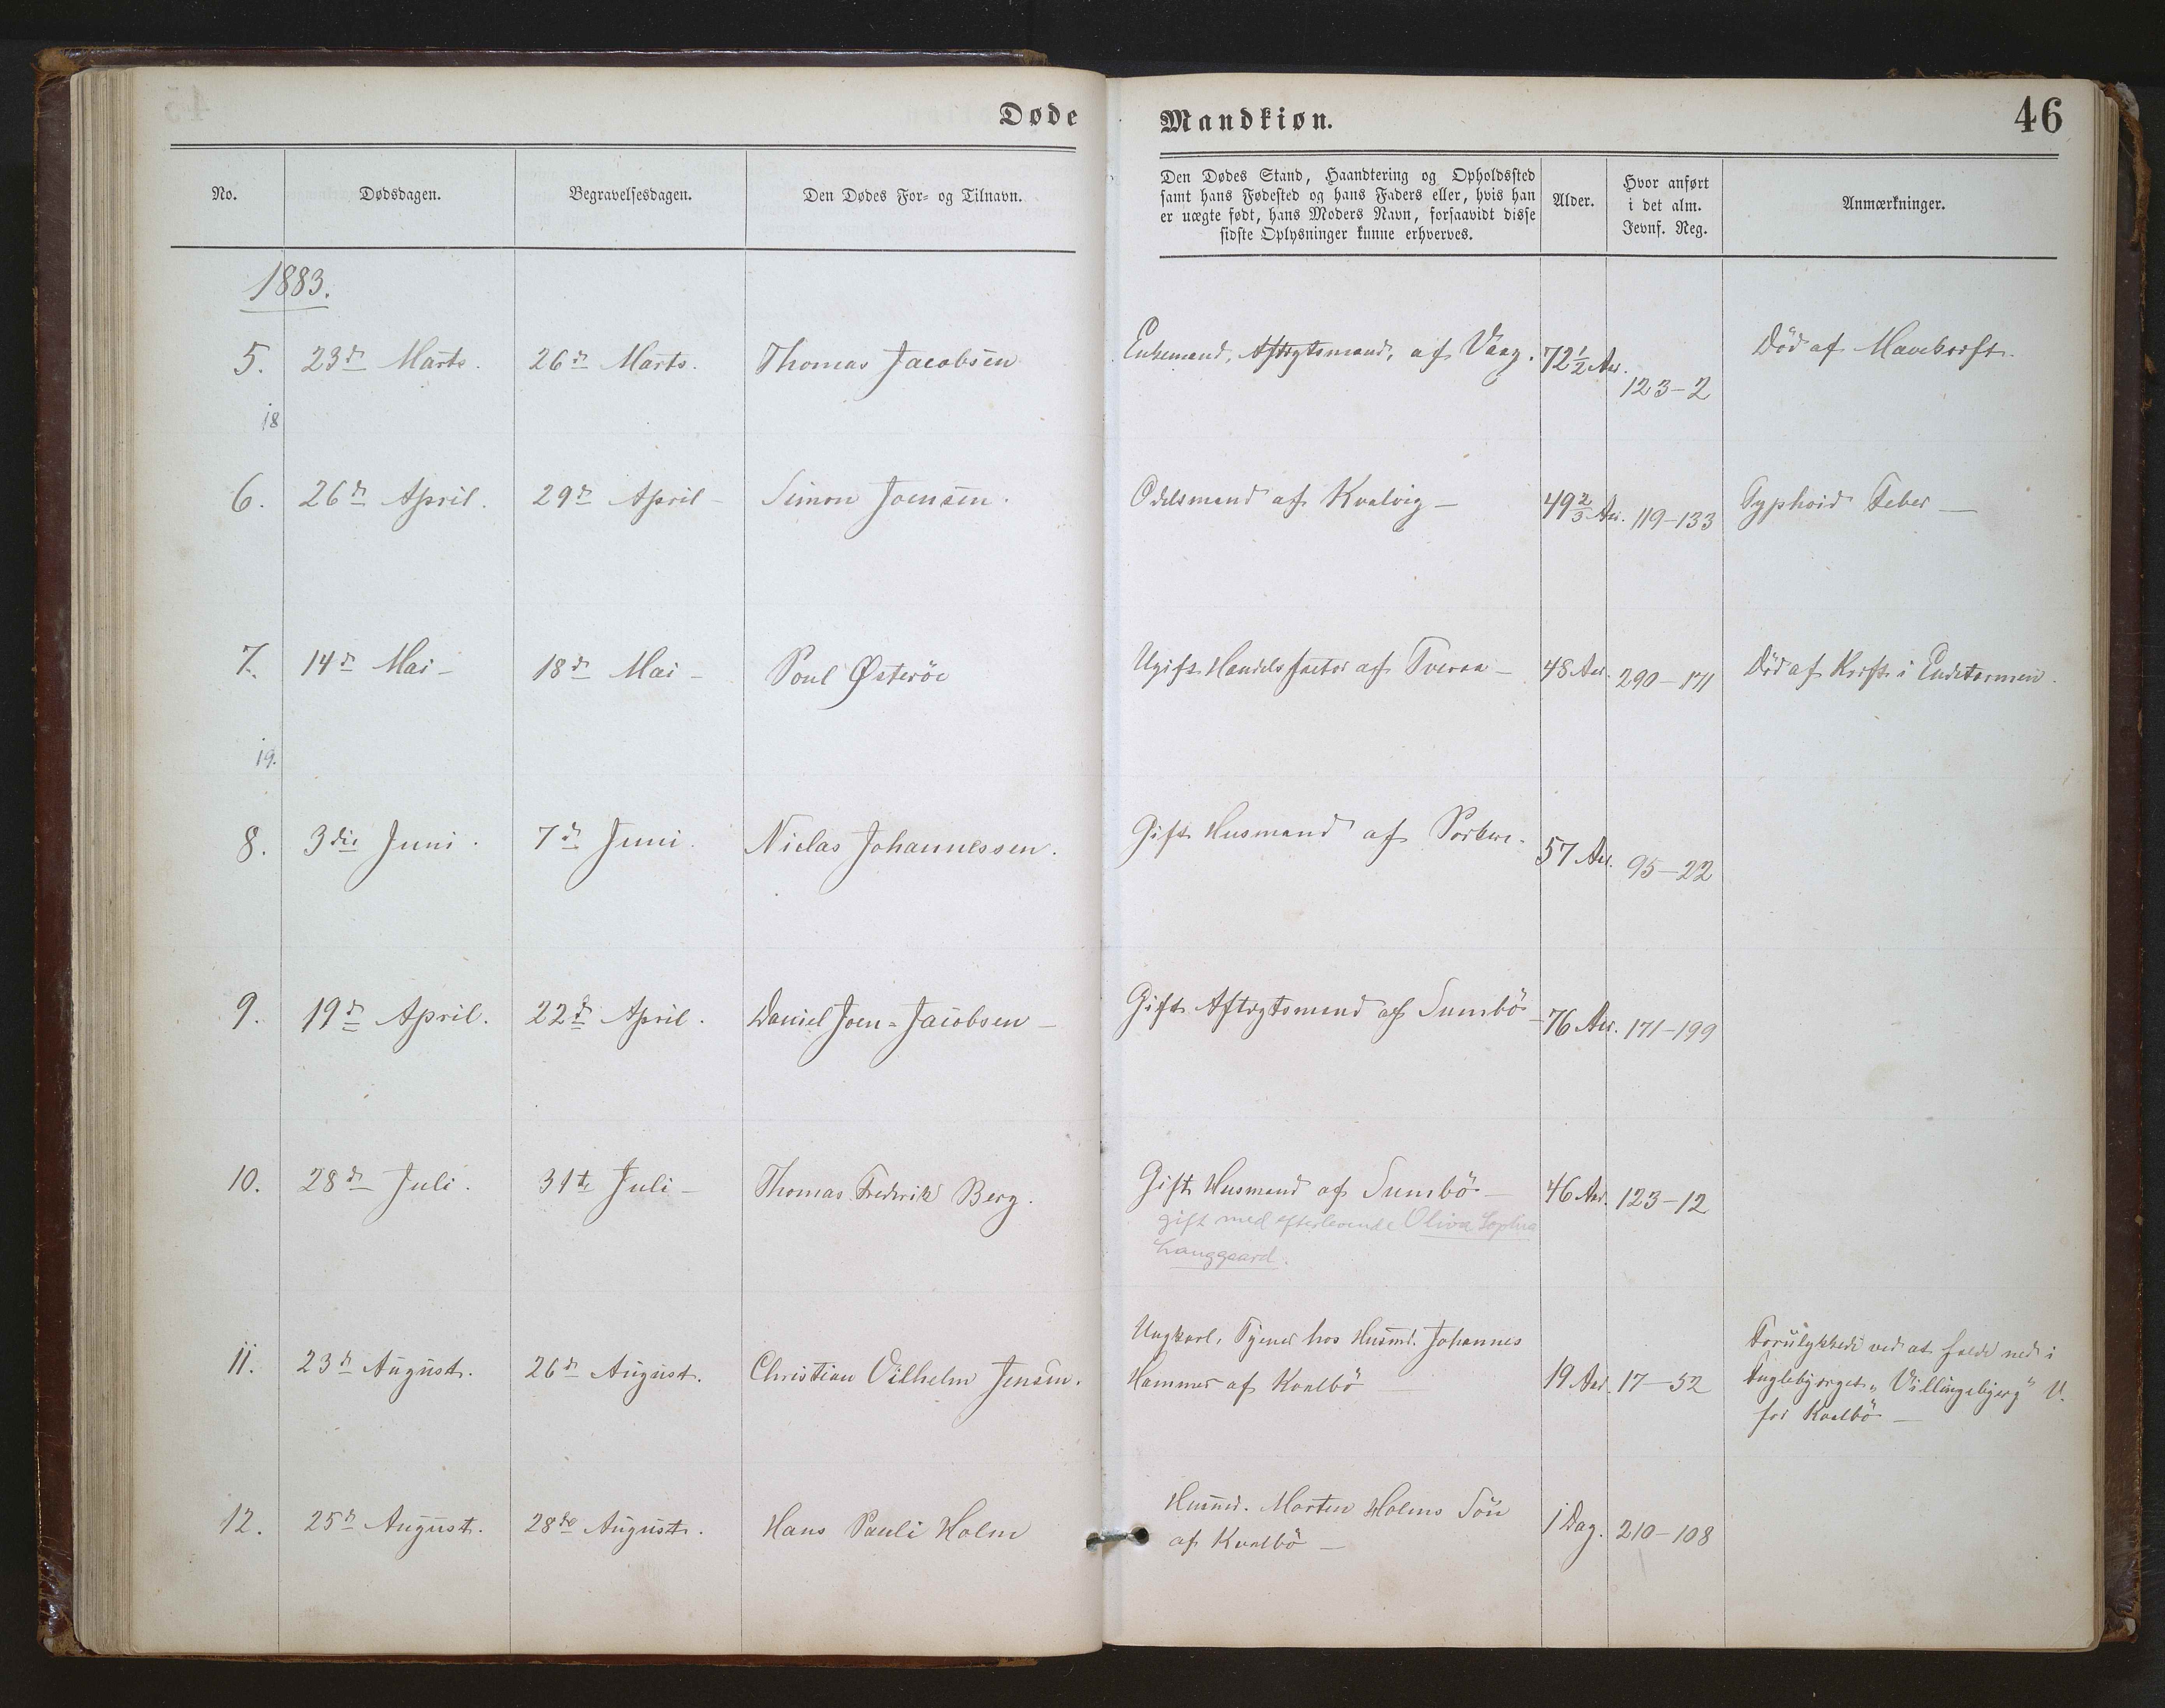 Døde
Mandkiøn.
46
No.
Dødsdagen.
Begravelsesdagen.
Den Dødes For- og Tilnavn.
Den Dødes Stand, Haandtering og Opholdssted
samt hans Fødested og hans Faders eller, hvis han
er uægte født, hans Moders Navn, forsaavidt disse
sidste Oplysninger kunne erhverves.
Alder.
Hvor anført
i det alm.
Jevnf. Reg.
Anmærkninger.
1883.
5. 23de Marts. 26de Marts. Thomas Jacobsen Enkemand, Aftægtsmand, af Vaag. 72½ Aar. 123-2 Död af Mavekræft.
18
6. 26de April. 29de April - Simon Joensen. Odelsmand af Kvalvig - 49⅔ Aar. 119-133 Typhoid Feber -
7. 14de Mai - 18de Mai - Poul Østeröe Ugift Handelsfactor af Tveraa - 48 Aar. 290-171 Död af Kræft i Endetarmen.
19.
8. 3die Juni. 7de Juni. Niclas Johannessen. Gift Husmand af Porkere. 57 Aar. 95-22
9. 19de April. 22de April. Daniel Joen=Jacobsen - Gift Aftægtsmand af Sumbö - 76 Aar. 171-199
10. 28de Juli. 31te Juli - Thomas Frederik Berg. Gift Husmand af Sumbö - 46 Aar. 123-12
gift med efterlevende Oliva Sophia
Langgaard.
11. 23de August. 26de August. Christian Vilhelm Jensen. Ungkarl, Tjener hos Husmd. Johannes
Hammer af Kvalbö - 19 Aar. 17-52
Forulykkede ved at falde ned i
Fuglebjerget "Villingebjerg" V.
for Kvalbö -
12. 25de August. 28de August. Hans Pauli Holm Husmd. Morten Holms Sön
af Kvalbö - 1 Dag. 210-108